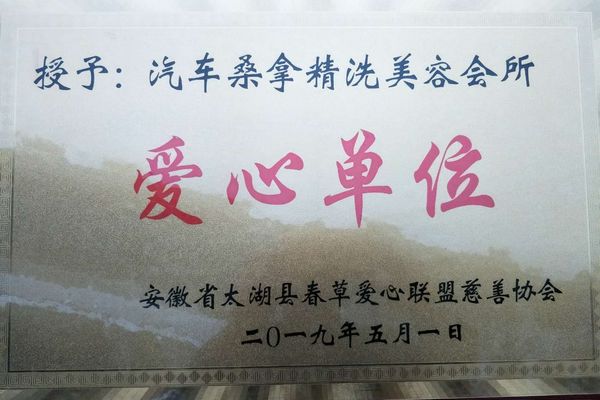 授予：汽车桑拿精洗美容会所
爱心单位
安徽省太湖县春草爱心联盟慈善协会
二0一九年五月一日